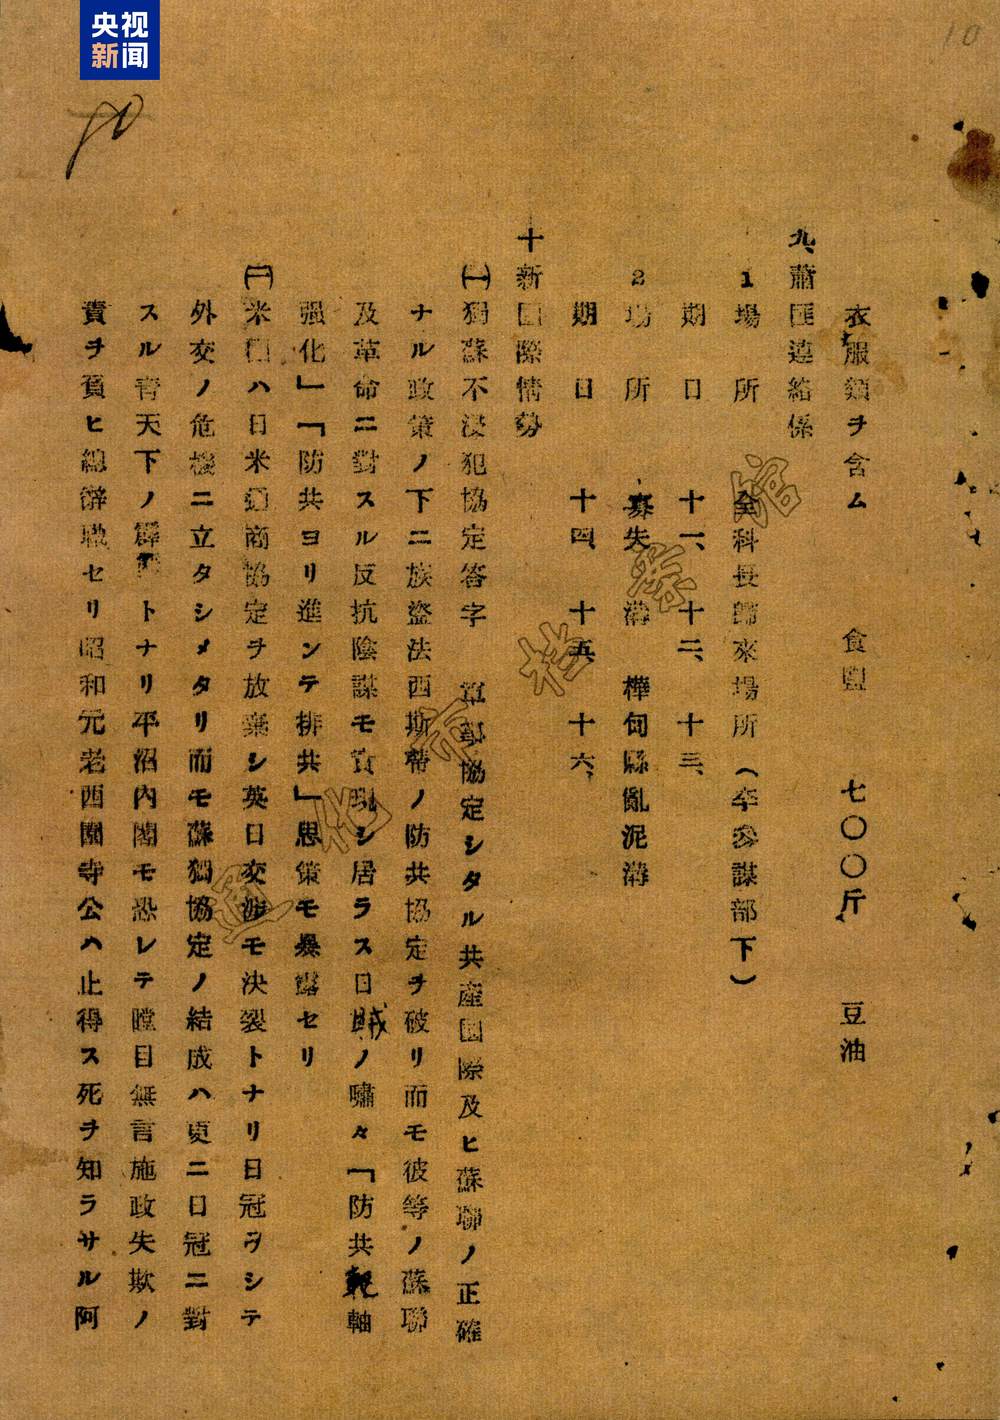 央视
新闻
10
衣服類ヲ含ム 食鹽 七〇〇斤 豆油
九、蕭匪連絡係
1場所 全科長歸來場所（卒參謀部下）
期日 十一、十二、十三、
2場所 寡失溝 樺甸縣亂泥溝
期日 十四、十五、十六、
十新國際情勢
㈠獨蘇不浸犯協定答字 軍事協定シタル共產國際及ヒ蘇聯ノ正確
ナル政策ノ下ニ族盜法西斯蒂ノ防共協定ヲ破リ而モ彼等ノ蘇聯
及革命ニ對スル反抗陰謀モ實現シ居ラス日賊ノ嘯々「防共軸
强化」「防共ヨリ進ンテ排共」思策モ暴露セリ
㈡米國ハ日米通商協定ヲ放棄シ英日交渉モ決裂トナリ日冠ヲシテ
外交ノ危機ニ立タシメタリ而モ蘇獨協定ノ結成ハ更ニ日冠ニ對
スル青天下ノ霹靂トナリ平沼內閣モ恐レテ瞠目無言施政失欺ノ
責ヲ負ヒ總辭職セリ昭和元老西園寺公ハ止得ス死ヲ知ラサル阿
通化市档案馆